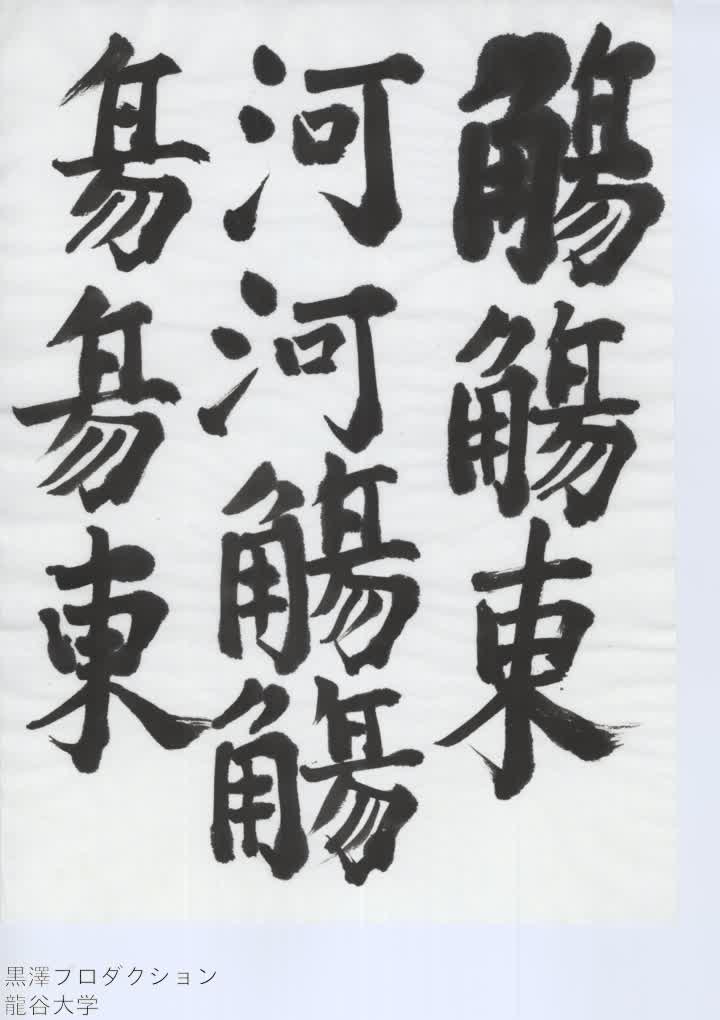 觴觴東
河河觴觴
東
黒澤プロダクション
龍谷大学